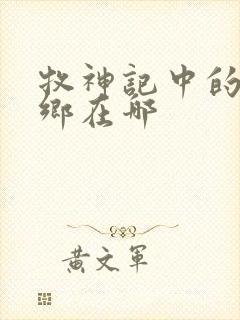 牧神記中的
鄉在哪
黃文軍